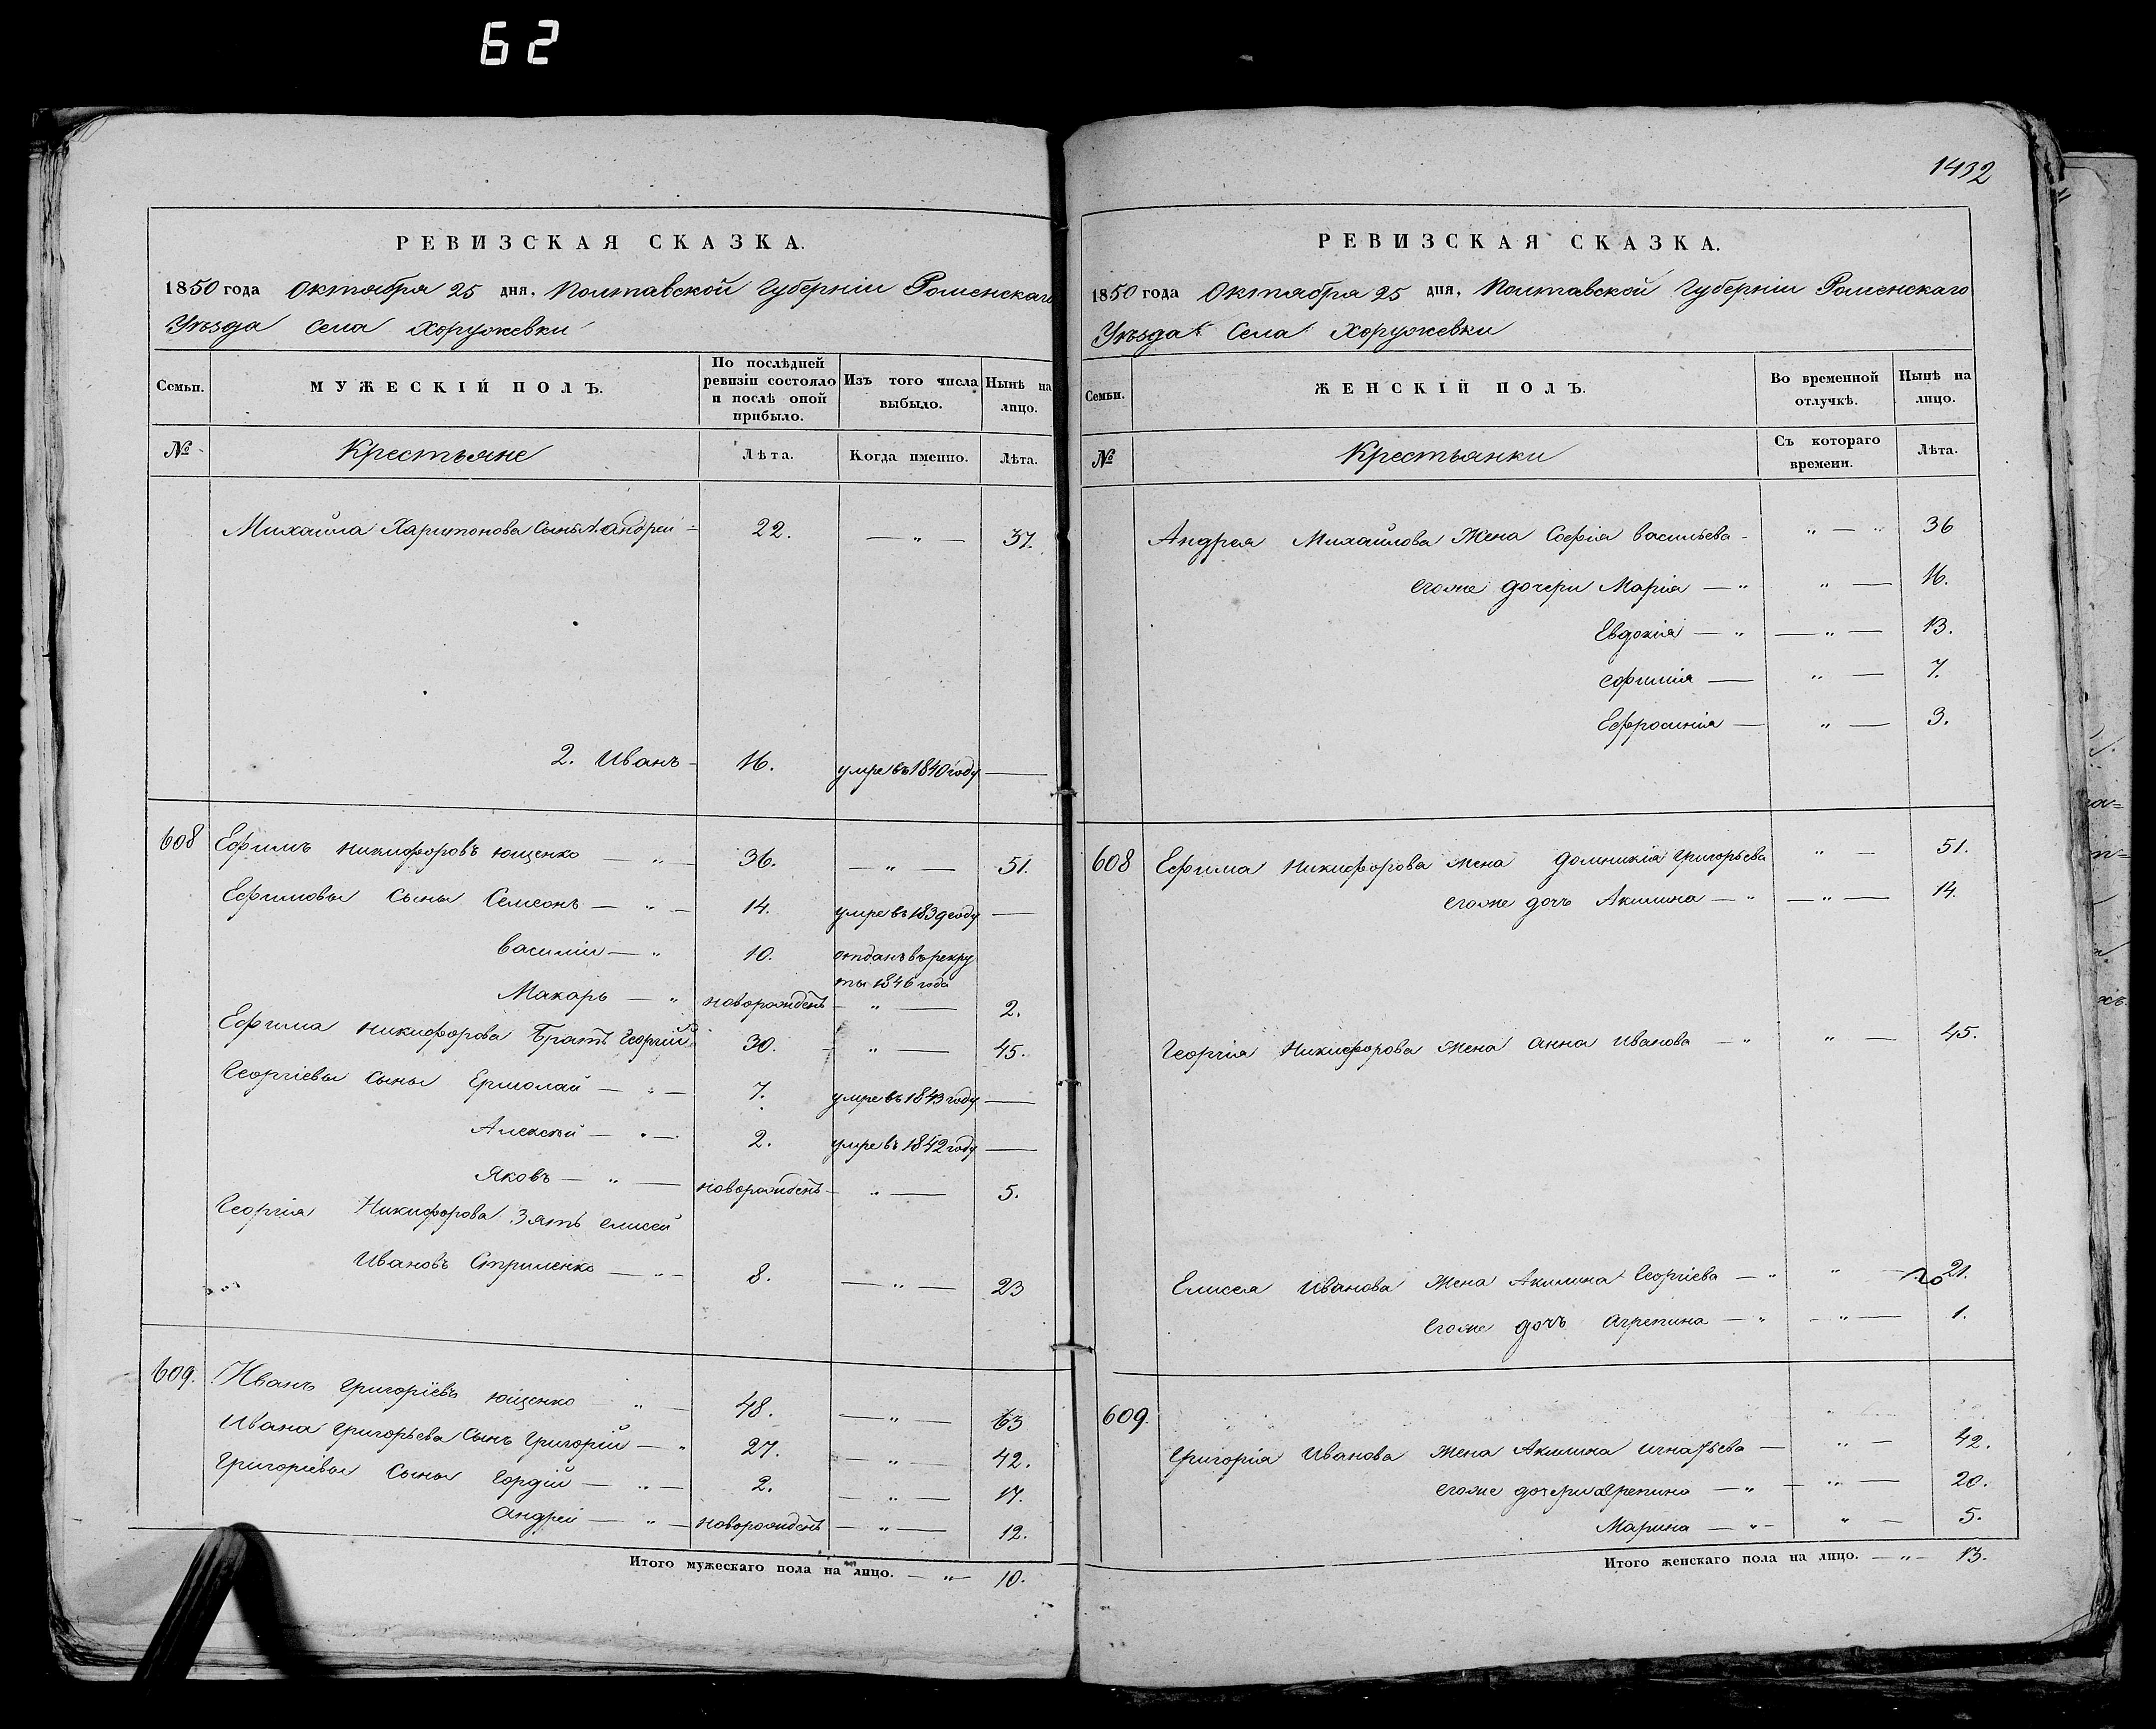 62
РЕВИЗСКАЯ СКАЗКА.
1850 года Октября 25 дня, Полтавской Губерніи Роменскаго
Уѣзда Села Хоружевки
Семьи.
МУЖЕСКІЙ ПОЛЪ.
По послѣдней ревизіи состояло и послѣ оной прибыло.
Изъ того числа выбыло.
Нынѣ на лицо.
№ Крестьяне Лѣта. Когда именно. Лѣта.
Михайла Харитонова Сынъ 1. Андрей 22. — „ — 37.
2. Иванъ 16. умре въ 1840 году —
608 Ефимъ Никифоровъ Ющенко — „ — 36. — „ — 51.
Ефимовы Сыны Семеонъ — „ — 14. умре въ 1839 году —
Василій — „ 10. отданъ въ рекру
ты 1846 года
Макаръ — „ новорожденъ — „ — 2.
Ефима Никифорова Братъ Георгій 30. — „ — 45.
Георгіевы Сыны Ермолай — „ — 7. умре въ 1843 году —
Алексѣй — „ — 2. умре въ 1842 году —
Яковъ — „ — новорожденъ — „ — 5.
Георгія Никифорова Зять Елисей
Ивановъ Стриленко — „ — 8. — „ — 23
609. Иванъ Григоріевъ Ющенко — „ — 48. — „ — 63
Ивана Григорьева Сынъ Григорій — „ 27. — „ — 42.
Григоріевы Сыны Гордій — „ — 2. — „ — 17.
Андрей — „ — новорожденъ — „ — 12.
Итого мужескаго пола на лицо. — „ — 10.
1432
РЕВИЗСКАЯ СКАЗКА.
1850 года Октября 25 дня, Полтавской Губерніи Роменскаго
Уѣзда Села Хоружевки
Семьи.
ЖЕНСКІЙ ПОЛЪ.
Во временной отлучкѣ.
Нынѣ на лицо.
№ Крестьянки Съ котораго времени. Лѣта.
Андрея Михайлова Жена Софія Васильева — „ — „ 36
Егоже дочери Марія — „ „ — 16.
Евдокія — „ — „ — 13.
Ефимія — „ — 7.
Ефросинія — „ — 3.
608 Ефима Никифорова Жена Домникія Григорьева „ — 51.
Егоже дочь Акилина — „ — „ — 14.
Георгія Никифорова Жена Анна Иванова — „ „ — 45.
Елисея Иванова Жена Акилина Георгіева — „ „ — 21.
Егоже дочь Агрепина — „ — „ — 1.
609.
Григорія Иванова Жена Акилина Игнатьева — „ — 42.
Егоже дочери Агрепина — „ — „ — 20.
Марина — „ — „ — 5.
Итого женскаго пола на лицо. — „ — 13.